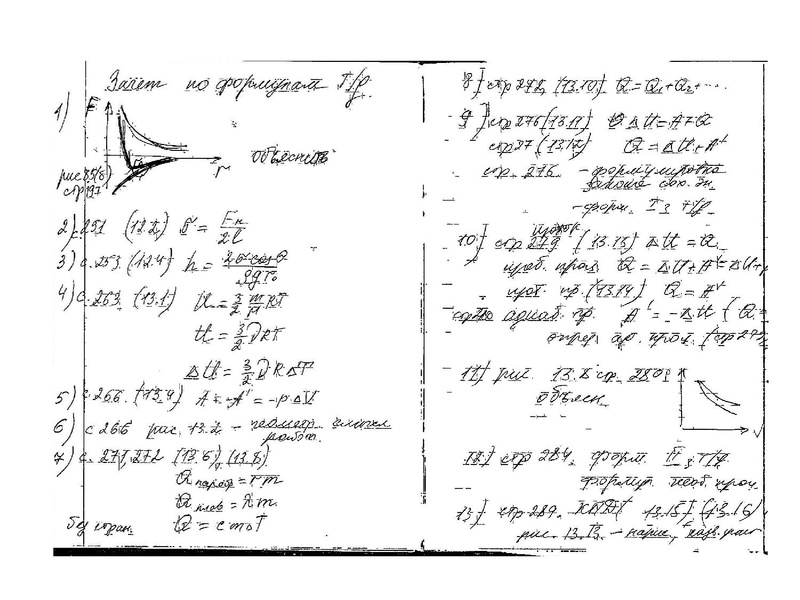 Зачет по формулам Т/д
1)
F
r
объяснить
рис 85(8)
стр 197
2) с. 251 (12.2) σ = Fн/2l
3) с. 253 (12.4) h = 2σcosθ/ρgr₀
4) с. 263 (13.1) U = 3/2 m/M RT
U = 3/2 νRT
ΔU = 3/2 νRΔT
5) с 266. (13.4) A = -A' = -pΔV
6) с 266 рис. 13.2 - геометр. смысл
работы.
7) с. 271, 272 (13.6), (13.8)
Q пароб = rm
Q плав = λm
Q = cmΔT
8) стр 272 (13.10) Q = Q₁+Q₂+...
9) стр 276 (13.11) ΔU = A+Q
(13.12) Q = ΔU+A'
стр. 276 - формулировка
закона сох. эн.
- форм. I з т/д
10) стр 279 изохор. (13.13) ΔU = Q
изоб. проц. Q = ΔU+A'
изот. пр. (13.14) Q = A'
адиаб. пр. A' = -ΔU (Q =
опред. ад. проц. (стр 27
11) рис. 13.8 стр. 280
объясн.
V
12) стр 284. форм. II з. т/д.
формул. необ. проц.
13) стр 289. КПД 13.15) (13.16)
рис. 13.13.